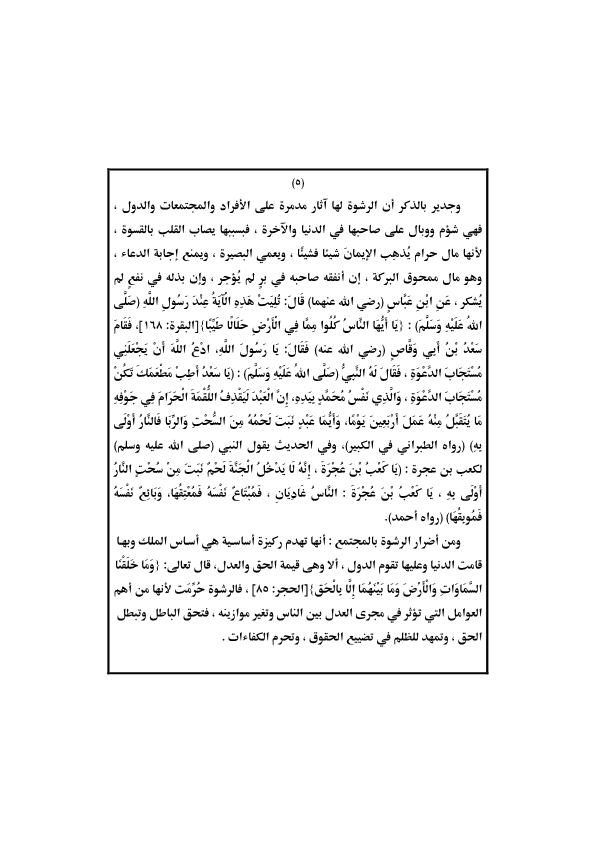 (٥)
وجدير بالذكر أن الرشوة لها آثار مدمرة على الأفراد والمجتمعات والدول ،
فهي شؤم ووبال على صاحبها في الدنيا والآخرة ، فبسببها يصاب القلب بالقسوة ،
لأنها مال حرام يُذهِب الإيمانَ شيئا فشيئًا ، ويعمي البصيرة ، ويمنع إجابة الدعاء ،
وهو مال ممحوق البركة ، إن أنفقه صاحبه في برٍ لم يُؤجر ، وإن بذله في نفعٍ لم
يُشكر ، عَنِ ابْنِ عَبَّاسٍ (رضي الله عنهما) قَالَ: تُلِيَتْ هَذِهِ الْآيَةُ عِنْدَ رَسُولِ اللَّهِ (صَلَّى
اللهُ عَلَيْهِ وَسَلَّمَ) : {يَا أَيُّهَا النَّاسُ كُلُوا مِمَّا فِي الْأَرْضِ حَلَالًا طَيِّبًا}[البقرة: ١٦٨]، فَقَامَ
سَعْدُ بْنُ أَبِي وَقَّاصٍ (رضي الله عنه) فَقَالَ: يَا رَسُولَ اللَّهِ، ادْعُ اللَّهَ أَنْ يَجْعَلَنِي
مُسْتَجَابَ الدَّعْوَةِ ، فَقَالَ لَهُ النَّبِيُّ (صَلَّى اللهُ عَلَيْهِ وَسَلَّمَ) : (يَا سَعْدُ أَطِبْ مَطْعَمَكَ تَكُنْ
مُسْتَجَابَ الدَّعْوَةِ ، وَالَّذِي نَفْسُ مُحَمَّدٍ بِيَدِهِ، إِنَّ الْعَبْدَ لَيَقْذِفُ اللُّقْمَةَ الْحَرَامَ فِي جَوْفِهِ
مَا يُتَقَبَّلُ مِنْهُ عَمَلَ أَرْبَعِينَ يَوْمًا، وَأَيُّمَا عَبْدٍ نَبَتَ لَحْمُهُ مِنَ السُّحْتِ وَالرِّبَا فَالنَّارُ أَوْلَى
بِهِ) (رواه الطبراني في الكبير)، وفي الحديث يقول النبي (صلى الله عليه وسلم)
لكعب بن عجرة : (يَا كَعْبُ بْنَ عُجْرَةَ ، إِنَّهُ لَا يَدْخُلُ الْجَنَّةَ لَحْمٌ نَبَتَ مِنْ سُحْتٍ النَّارُ
أَوْلَى بِهِ ، يَا كَعْبُ بْنَ عُجْرَةَ : النَّاسُ غَادِيَانِ ، فَمُبْتَاعٌ نَفْسَهُ فَمُعْتِقُهَا، وَبَائِعٌ نَفْسَهُ
فَمُوبِقُهَا) (رواه أحمد).
ومن أضرار الرشوة بالمجتمع : أنها تهدم ركيزة أساسية هي أساس الملك وبها
قامت الدنيا وعليها تقوم الدول ، ألا وهى قيمة الحق والعدل، قال تعالى: {وَمَا خَلَقْنَا
السَّمَاوَاتِ وَالْأَرْضَ وَمَا بَيْنَهُمَا إِلَّا بِالْحَقِ}[الحجر: ٨٥] ، فالرشوة حُرِّمَت لأنها من أهم
العوامل التي تؤثر في مجرى العدل بين الناس وتغير موازينه ، فتحق الباطل وتبطل
الحق ، وتمهد للظلم في تضييع الحقوق ، وتحرم الكفاءات .